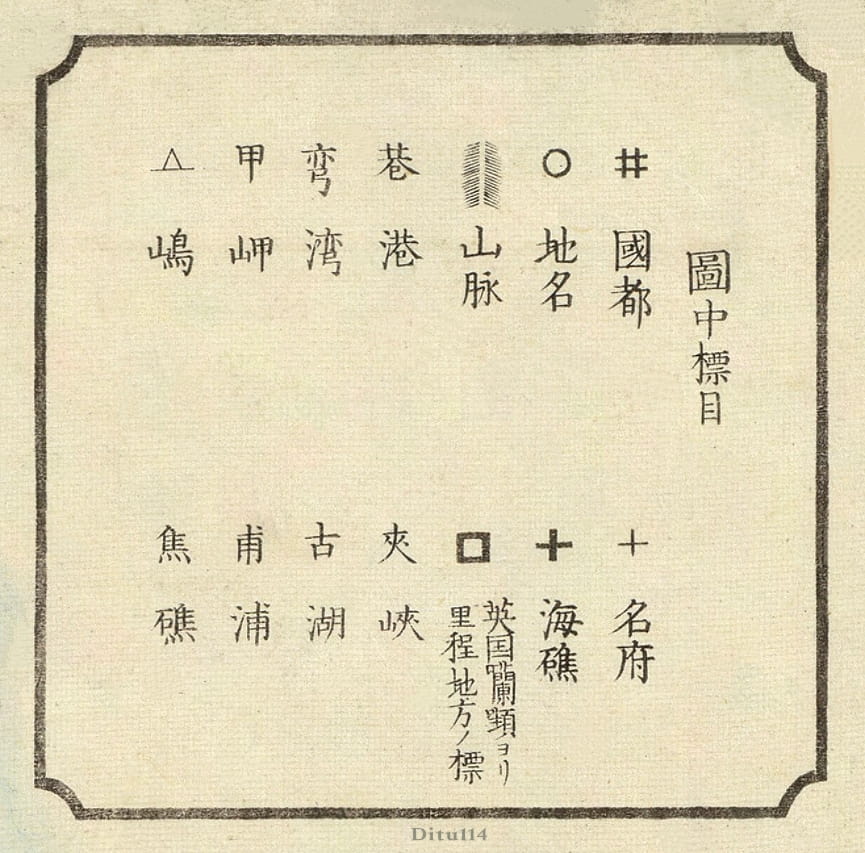 圖中標目
# 國都
○ 地名
山脉
巷 港
弯 湾
甲 岬
△ 嶋
十 名府
十 海礁
□ 英国囒ヨリ
里程地方ノ標
夾 峽
古 湖
甫 浦
焦 礁
Ditu114